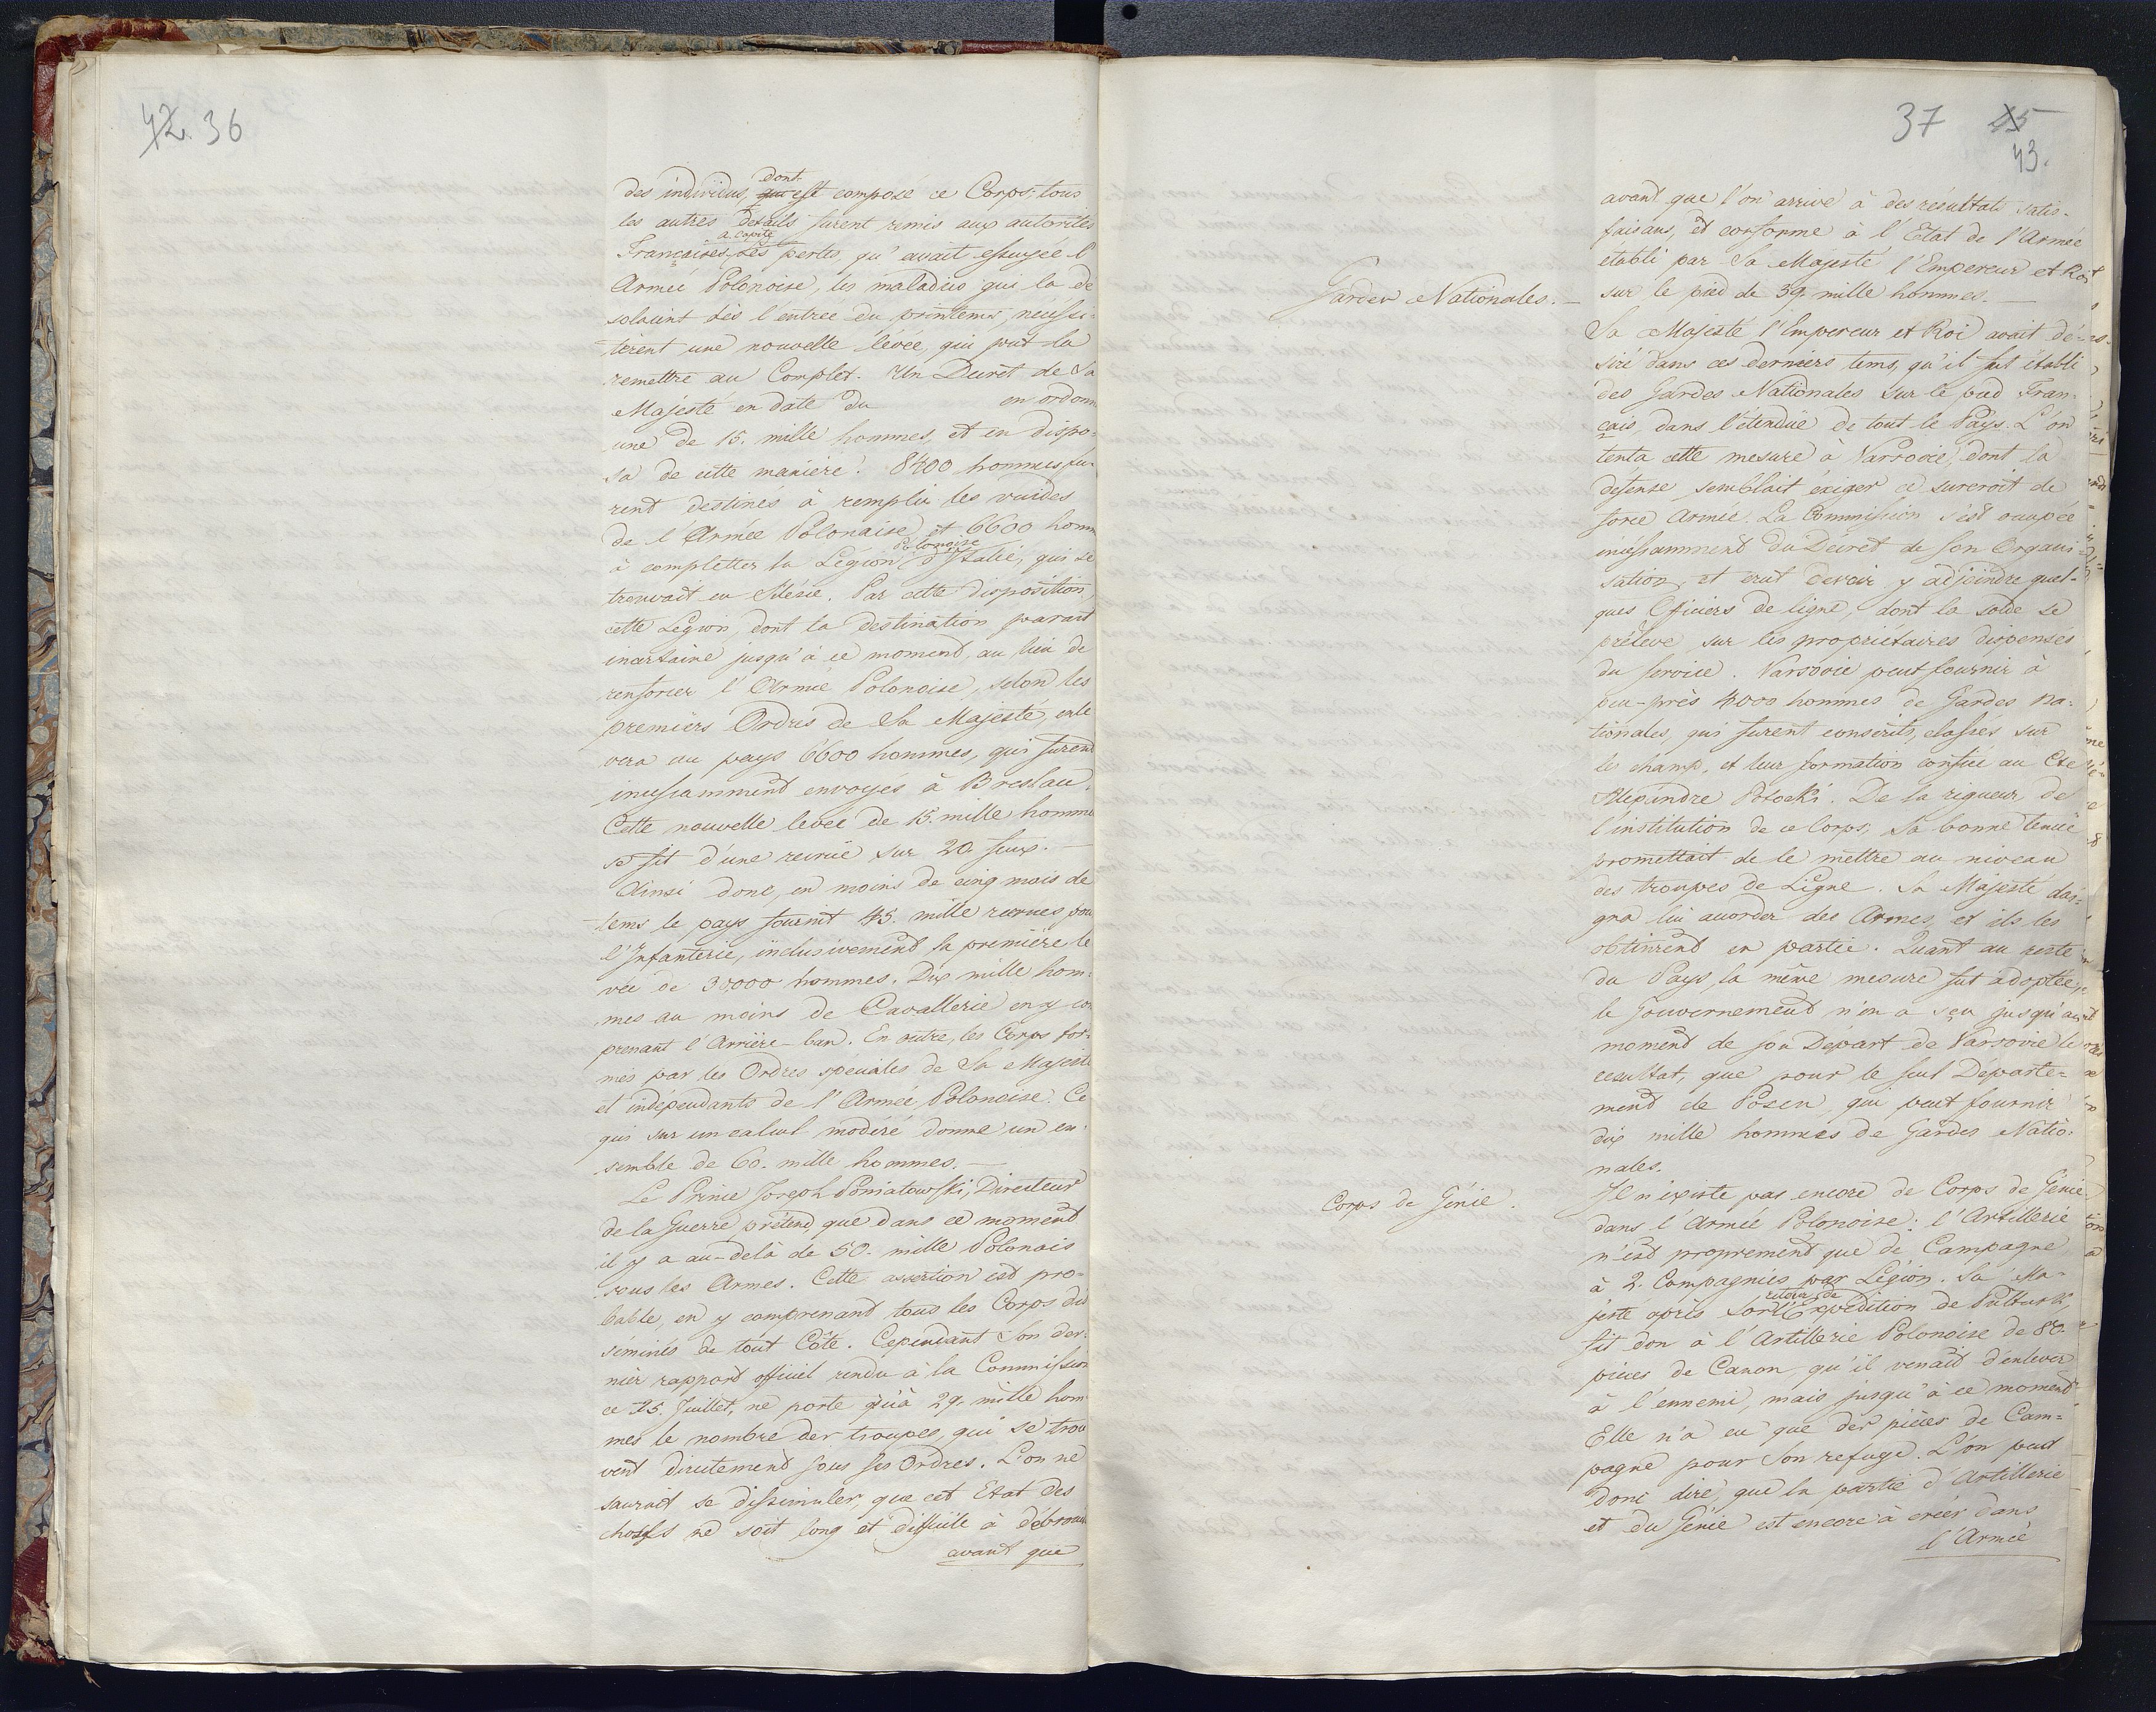 42. 36
des individus, dont
que est composé ce Corps, tous
les autres détails furent remis aux autorités
a capite
Françaises. Les pertes, qu'avait essuyée l'
Armée Polonoise, les maladies qui la dé
solaient dès l'entrée du printems, nécessi-
tèrent une nouvelle levée, qui put la
remettre au Complet. Un Decret de Sa
Majesté en date du en ordonn
une de 15. mille hommes, et en dispo-
sa de cette manière. 8400 hommes fu-
rent destinés à remplir les vuides
de l'Armée Polonaise, et 6600 homm
Polonoise
à completter la Légion d'Italie, qui se
trouvait en Silésie. Par cette disposition
cette Légion, dont la destination parait
incertaine jusqu'à ce moment, au lieu de
renforcer l'Armée Polonoise, selon les
premiers Ordres de Sa Majesté, enle
vera au pays 6600 hommes, qui furent
incessamment envoyés à Breslau.
Cette nouvelle levée de 15. mille homme
se fit d'une recrüe sur 20 feux.
Ainsi donc, en moins de cinq mois de
tems le pays fournit 45. mille recrues pou
l'Infanterie, inclusivement la première le
vée de 30,000 hommes. Dix mille hom-
mes au moins de Cavallerie en y com
prenant l'Arrière-ban. En outre, les Corps for-
més par les Ordres spéciales de Sa Majesté
et independants de l'Armée Polonoise. Ce
qui sur un calcul modéré donne un en-
semble de 60. mille hommes.
Le Prince Joseph Poniatowski, Directeur
de la Guerre prétend, que dans ce moment
il y a au-delà de 50. mille Polonais
sous les Armes. Cette assertion est pro-
bable, en y comprenant tous les Corps dis
séminés de tout Côté. Cependant Son der-
nier rapport officiel rendu à la Commission
ce 15. Juillet, ne porte qu'à 29. mille hom
mes le nombre des troupes, qui se trou
vent directement sous ses Ordres. L'on ne
saurait se dissimuler, que cet Etat des
choses ne soit long et difficile à débrouil
avant que
37 45
43.
avant que l'on arrive à des résultats satis-
faisans, et conforme à l'Etat de l'Armée
établi par Sa Majesté l'Empereur et Roi
sur le pied de 39 mille hommes.
Gardes Nationales.
Sa Majesté l'Empereur et Roi avait dé-
siré dans ces derniers tems, qu'il fut établi
des Gardes Nationales sur le pied Fran-
çais, dans l'étendüe de tout le Pays. L'on
tenta cette mesure à Varsovie, dont la
defense semblait éxiger ce surcroit de
force Armée. La Commission s'est occupée
incessamment du Décret de son Organi-
sation, et crut devoir y adjoindre quel-
ques Officiers de ligne, dont la solde se
préleve sur les propriétaires dispensés
du service. Varsovie peut fournir à
peu-près 4000 hommes de Gardes na-
tionales, qui furent conscrits, classés sur
le champ, et leur formation confiée au Cte
Alexandre Potocki. De la rigueur de
l'institution de ce Corps, Sa bonne tenüe
promettait de le mettre au niveau
des troupes de Ligne. Sa Majesté dai-
gna lui accorder des Armes, et ils les
obtinrent en partie. Quant au reste
du Pays, la même mesure fut adoptée,
le Gouvernement n'en a sçu jusqu'au
moment de son Départ de Varsovie le
resultat, que pour le seul Départe-
ment de Posen, qui peut fournir
dix mille hommes de Gardes Natio-
nales.
Corps de Génie.
Il n'existe pas encore de Corps de Génie
dans l'Armée Polonoise: l'Artillerie
n'est proprement que de Campagne
à 2. Compagnies par Légion. Sa Ma-
retour de
jesté après son l'Expedition de Pultusk,
fit don à l'Artillerie Polonoise de 80.
pièces de Canon, qu'il venait d'enlever
à l'ennemi, mais jusqu'à ce moment
Elle n'a eu que des pièces de Cam-
pagne pour Son refuge. L'on peut
donc dire que la partie d'Artillerie
et du Génie est encore à créer dans
l'Armée